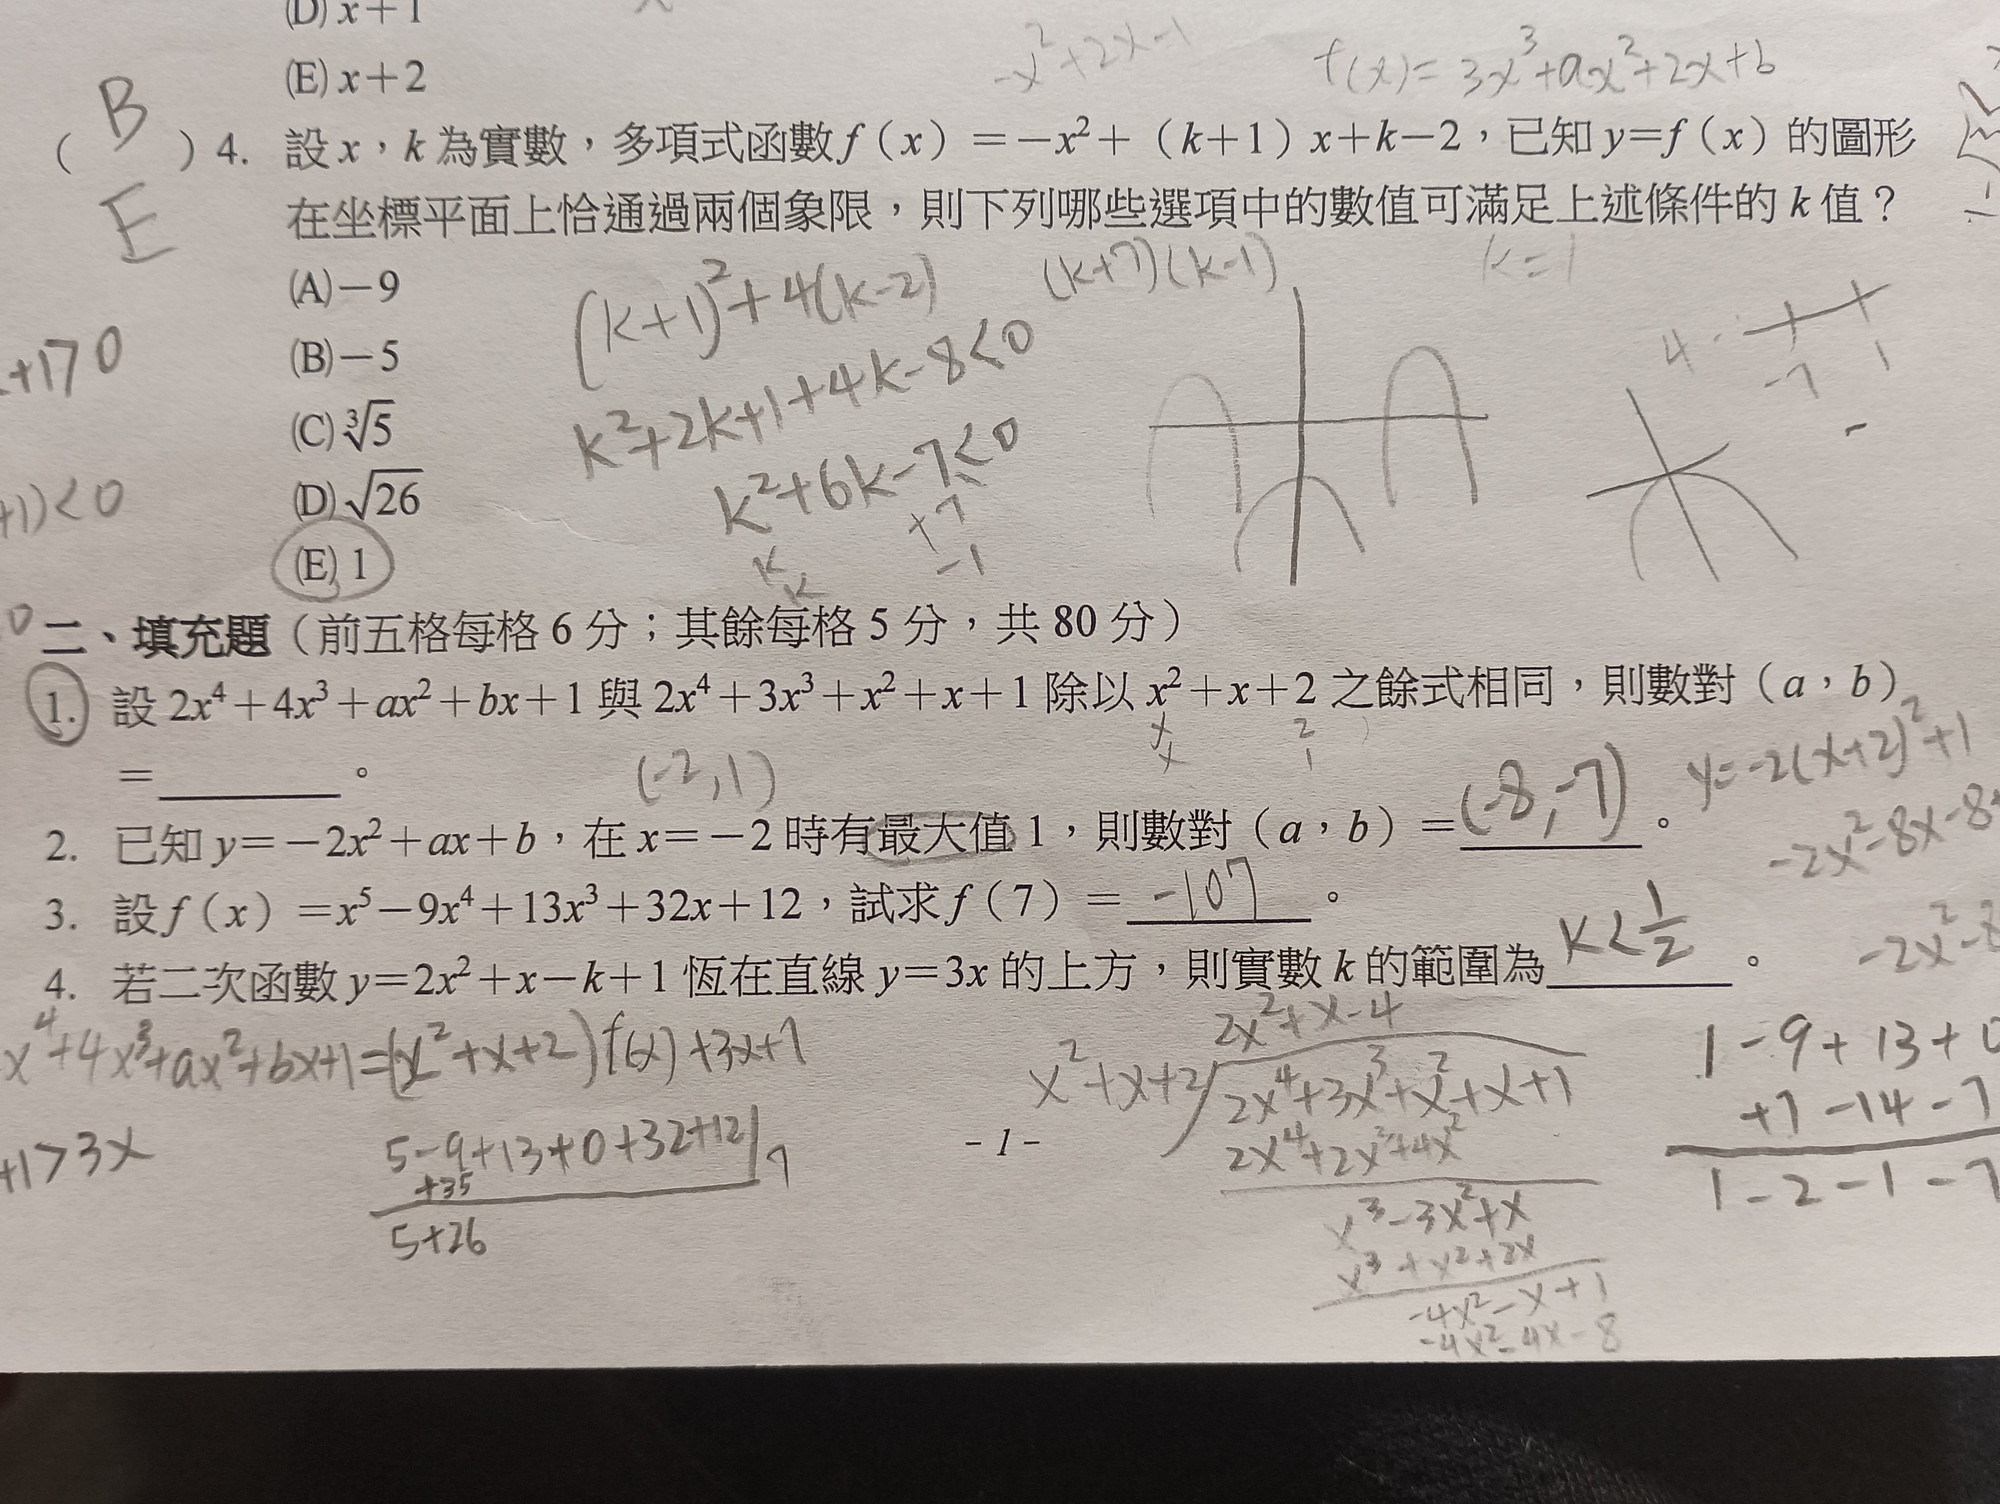 (D) x+1
(E) x+2
-x²+2x-1
f(x)=3x³+ax²+2x+b
( B E ) 4. 設 x，k 為實數，多項式函數 f（x）＝－x²＋（k＋1）x＋k－2，已知 y＝f（x）的圖形
在坐標平面上恰通過兩個象限，則下列哪些選項中的數值可滿足上述條件的 k 值？
(A)－9
(B)－5
(C) ∛5
(D) √26
(E) 1
(k+1)²+4(k-2)
(k+7)(k-1)
k=1
k²+2k+1+4k-8<0
k²+6k-7<0
k +7
k -1
+ +
-7 1
-
+1>0
+1)<0
二、填充題（前五格每格 6 分；其餘每格 5 分，共 80 分）
1. 設 2x⁴＋4x³＋ax²＋bx＋1 與 2x⁴＋3x³＋x²＋x＋1 除以 x²＋x＋2 之餘式相同，則數對（a，b）
＝________。
x 2
x 1
(-2,1)
y=-2(x+2)²+1
2. 已知 y＝－2x²＋ax＋b，在 x＝－2 時有最大值 1，則數對（a，b）＝(-8,-7)。
-2x²-8x-8+
3. 設 f（x）＝x⁵－9x⁴＋13x³＋32x＋12，試求 f（7）＝-107。
-2x²-8
4. 若二次函數 y＝2x²＋x－k＋1 恆在直線 y＝3x 的上方，則實數 k 的範圍為k<1/2。
x⁴+4x³+ax²+bx+1=(x²+x+2)f(x)+3x+7
+1>3x
5-9+13+0+32+12 | 7
+35
5+26
－1－
2x²+x-4
x²+x+2
2x⁴+3x³+x²+x+1
2x⁴+2x³+4x²
x³-3x²+x
x³+x²+2x
-4x²-x+1
-4x²-4x-8
1-9+13+0
+7-14-7
1-2-1-7